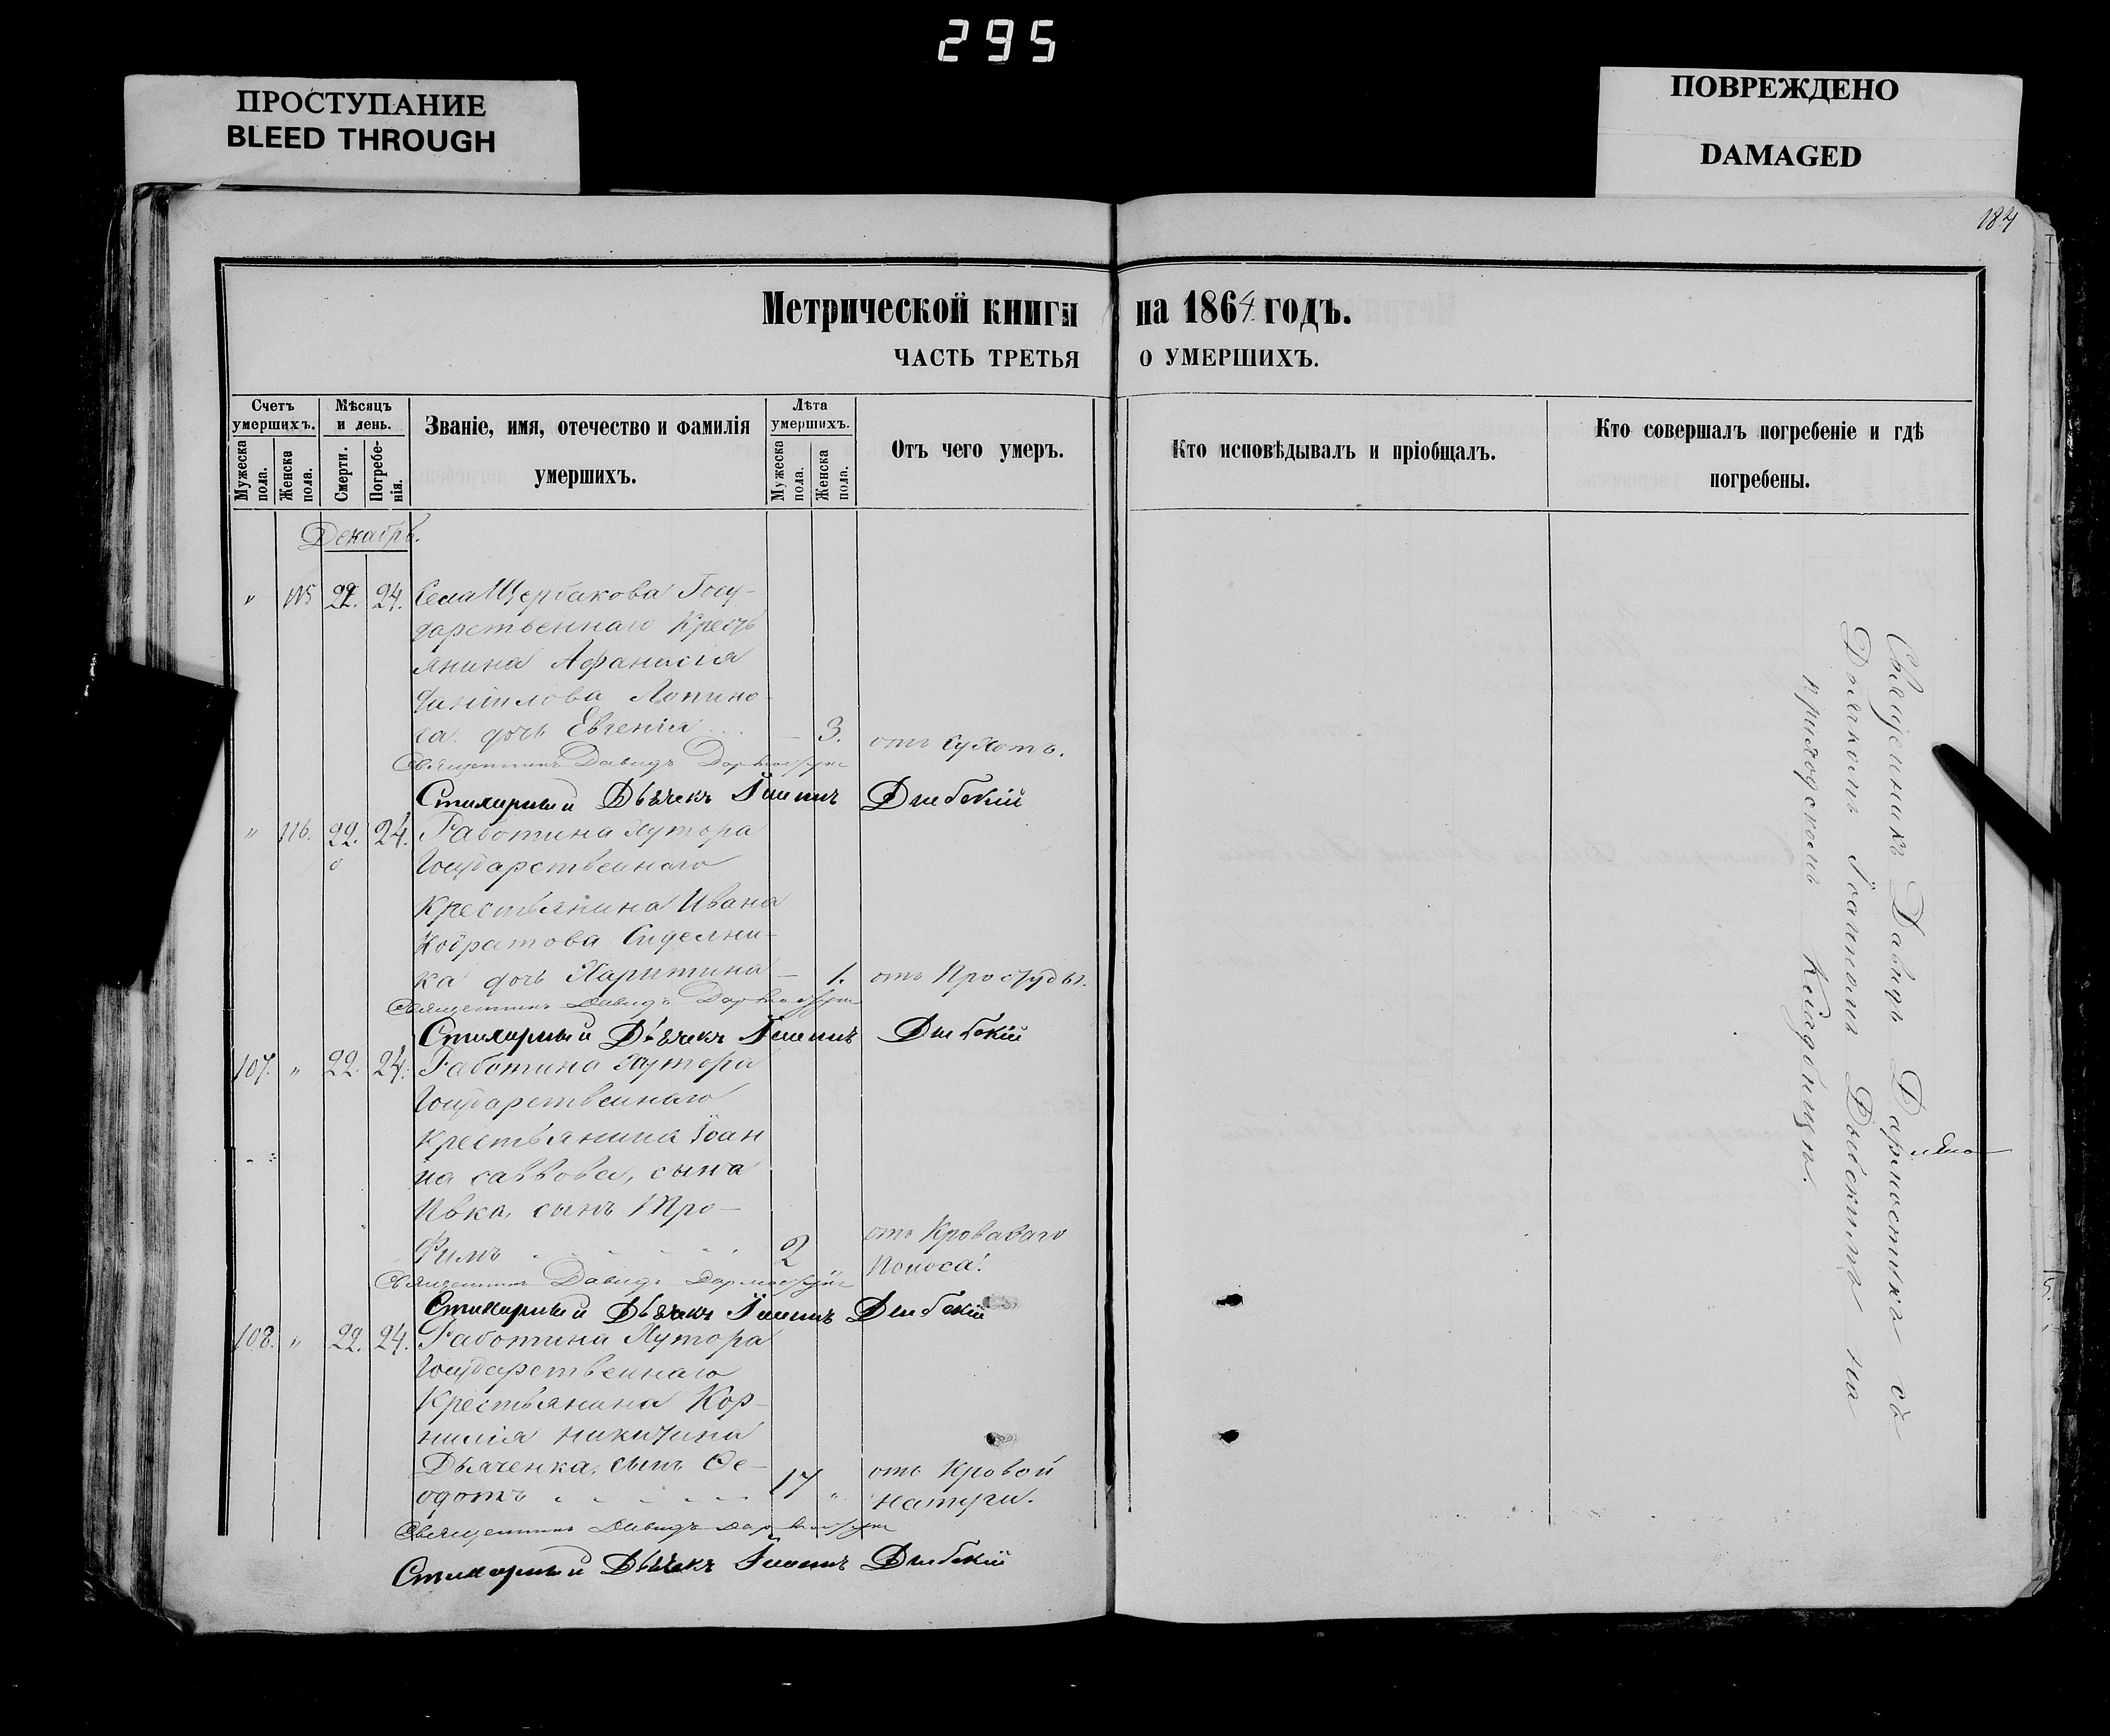 295
ПРОСТУПАНИЕ
BLEED THROUGH
ПОВРЕЖДЕНО
DAMAGED
184
Метрической книги на 1864 годъ.
ЧАСТЬ ТРЕТЬЯ О УМЕРШИХЪ.
Счетъ умершихъ.
Мужеска пола.
Женска пола.
Мѣсяцъ и день.
Смерти.
Погребенія.
Званіе, имя, отечество и фамилія
умершихъ.
Лѣта умершихъ.
Мужеска пола.
Женска пола.
Отъ чего умеръ.
Кто исповѣдывалъ и пріобщалъ.
Кто совершалъ погребеніе и гдѣ
погребены.
Декабрь.
" 115 22. 24. Села Щербакова Госу-
дарственнаго Кресть
янина Афанасія
Даніилова
дочь Евгенія — 3. отъ Сухотъ.
Священникъ Давидъ
Стихарный Дьячекъ Іоаннъ
" 116. 22. 24. Работина Хутора
Государственнаго
Крестьянина Ивана
Кодратова Сидельни-
ка дочь Харитина — 1. отъ Простуды.
Священникъ Давидъ
Стихарный Дьячекъ Іоаннъ
107. " 22. 24. Работина Хутора
Государственнаго
Крестьянина Іоан
на Саввова, сына
Ивка, сынъ Тро-
фимъ 2 отъ Кроваваго
Поноса.
Священникъ Давидъ
Стихарный Дьячекъ Іоаннъ
108. " 22. 24. Работина Хутора
Государственнаго
Крестьянина Кор-
нилія Никитина
Дьяченка, сынъ Ѳе-
одотъ 17 " отъ Кровой
натуги.
Священникъ Давидъ
Стихарный Дьячекъ Іоаннъ
Священникъ Давидъ съ
Дьячкомъ Іоанномъ на
приходскомъ Кладбищѣ.